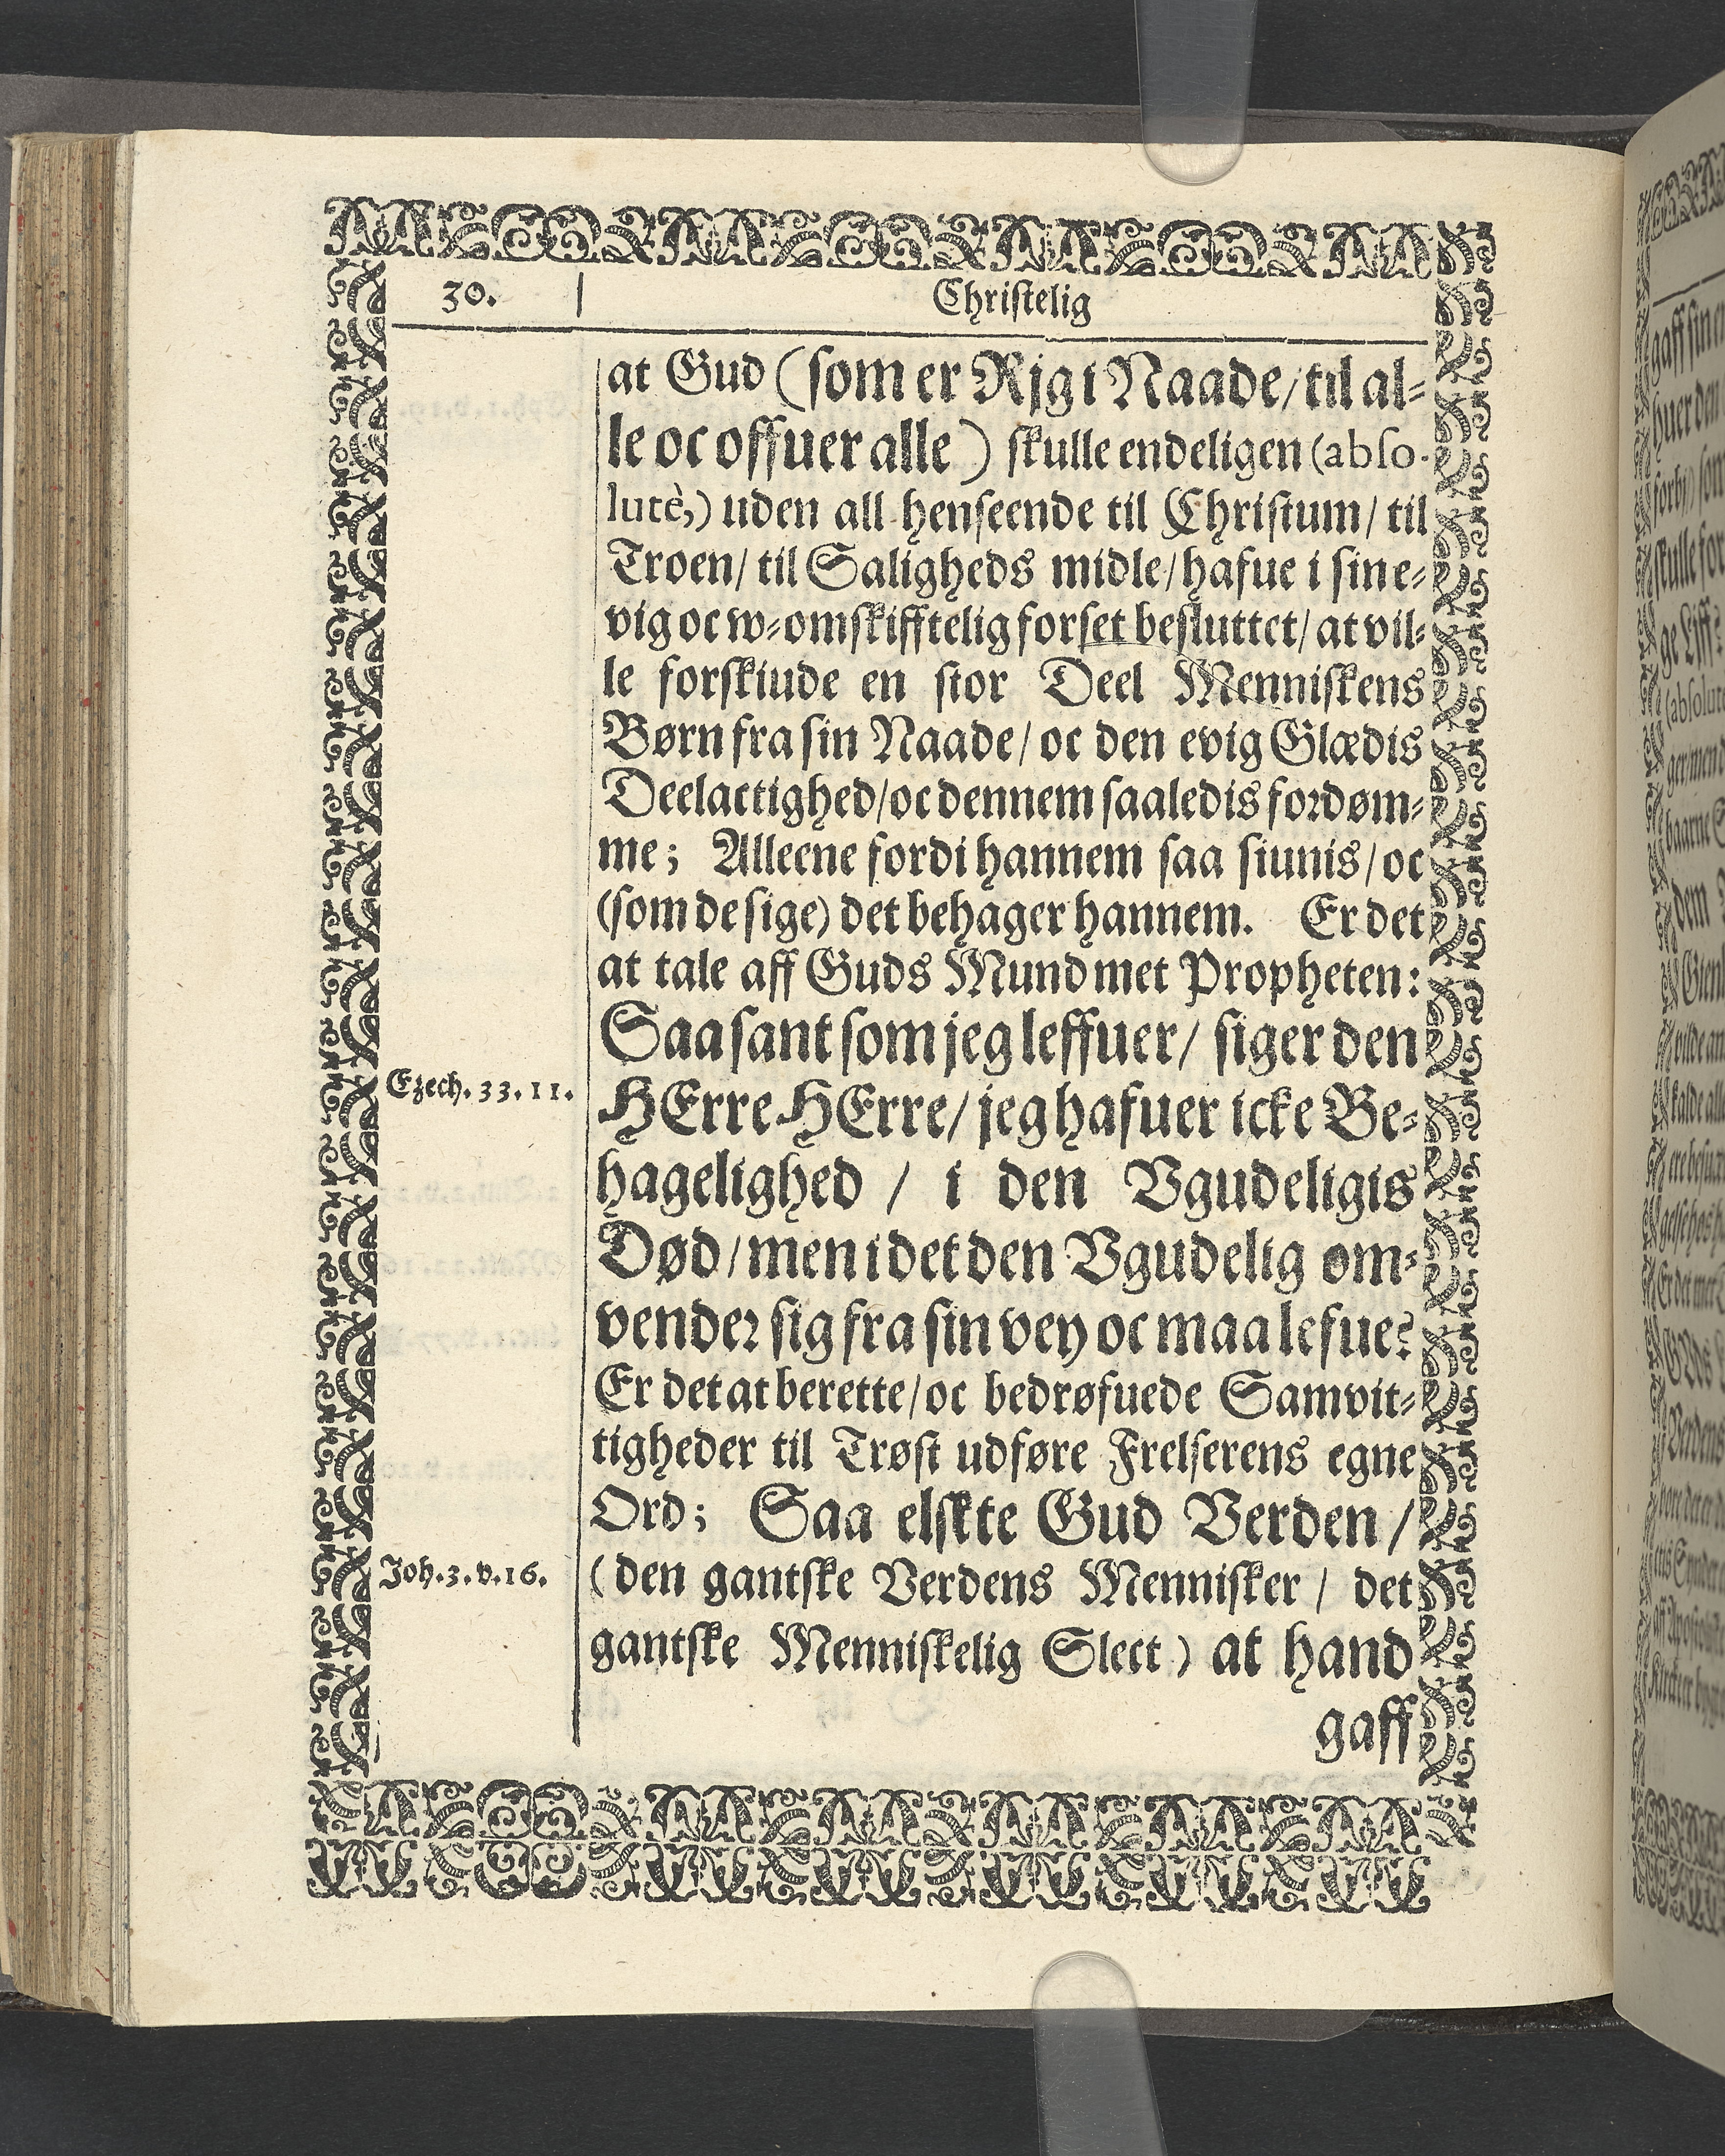 30.
Christelig
at Gud (som er Rjg i Naade/ til al-
le oc offuer alle) skulle endeligen (abso-
lutè,) uden all henseende til Christum/ til
Troen/ til Saligheds midle/ hafue i sin e-
vig oc w-omskifftelig forset besluttet/ at vil-
le forskiude en stor Deel Menniskens
Børn fra sin Naade/ oc den evig Glædis
Deelactighed/ oc dennem saaledis fordøm-
me; Alleene fordi hannem saa siunis/ oc
(som de sige) det behager hannem. Er det
at tale aff Guds Mund met Propheten:
Saa sant som jeg leffuer/ siger den
Ezech. 33. 11.
HErre HErre/ jeg hafuer icke Be-
hagelighed / i den Vgudeligis
Død/ men i det den Vgudelig om-
vender sig fra sin vey oc maa lefue?
Er det at berette/ oc bedrøfuede Samvit-
tigheder til Trøst udføre Frelserens egne
Ord; Saa elskte Gud Verden /
Joh. 3. v. 16.
(den gantske Verdens Mennisker / det
gantske Menniskelig Slect) at hand
gaff